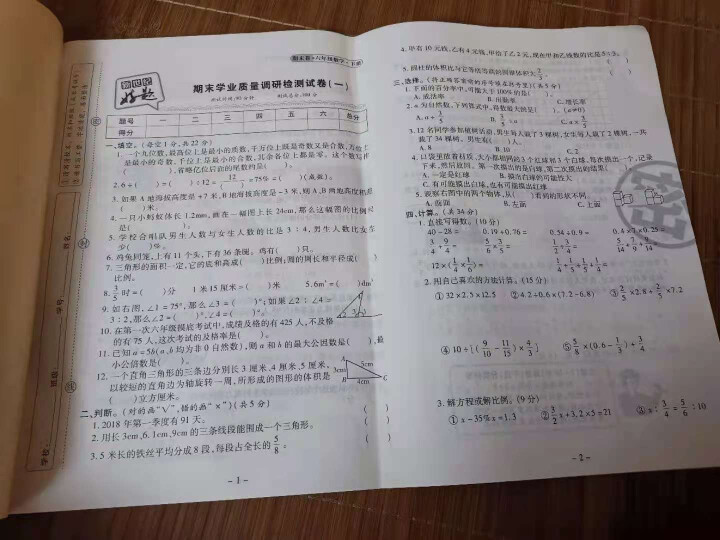 期末卷·六年级数学·下册
新世纪
好题
期末学业质量调研检测试卷(一)
测试时间:95分钟 测试总分:100分
题号 一 二 三 四 五 六 总分
得分
一、填空。(每空1分,共22分)
1. 一个九位数,最高位上是最小的质数,千万位上既是奇数又是合数,万位上
是最小的奇数,千位上是最小的合数,其余各位上都是零。这个数写作
( ),省略亿位后面的尾数约是( )。
2. 6÷( )=( ):12=12/( )=75%=( )(成数)。
3. 如果A地海拔高度是+7米,B地海拔高度是-3米,则A、B两地高度相差
( )米。
4. 一只小蚂蚁体长1.2mm,画在一幅图上长24cm,那么这幅图的比例尺
是( )。
5. 学校合唱队男生人数与女生人数的比是3:4,男生人数比女生
少( )%。
6. 鸡兔同笼,上有11个头,下有36条腿。鸡有( )只。
7. 三角形的面积一定,它的底和高成( )比例;圆的周长和半径成( )
比例。
8. 3/5时=( )分 1米15厘米=( )米 5.6m³=( )dm³
9. 如右图,∠1=75°,那么∠3=( )°;如果∠2:∠4=
3:2,那么∠2=( )°,∠4=( )°。
10. 在第一次六年级摸底考试中,成绩及格的有425人,不及格
的有75人,这次考试的及格率是( )。
11. 已知a=5b(a、b均为非0自然数),则a和b的最大公因数是( ),最
小公倍数是( )。
12. 一个直角三角形的三条边分别长3厘米、4厘米、5厘米,
以较短的直角边为轴旋转一周,所形成的图形的体积是
( )立方厘米。
A
3cm
5cm
B 4cm C
二、判断。(对的画“√”,错的画“×”)(共5分)
1. 2018年第一季度有91天。 ( )
2. 用长3cm,6.1cm,9cm的三条线段能围成一个三角形。 ( )
3. 5米长的铁丝平均分成8段,每段占全长的5/8。 ( )
- 1 -
学校:
班级:
学号:
姓名:
4. 甲有10元钱,乙有4元钱,甲给了乙2元,现在甲和乙钱数的比是5:3。
5. 圆柱的体积比与它等底等高的圆锥体积大2/3。
三、选择。(将正确答案前的序号填在括号里)(共5分)
1. 下面的百分率中,可能大于100%的是( )。
A. B. 出勤率 C. 增长率
2. a为自然数,下列算式中,得数最大的是( )。
A. a+3/5 C. a÷3/5
3. 12名同学参加植树活动,男生每人栽了3棵树,女生每人栽了2棵树,一共
栽了34棵树。男生有( )人。
A. 8 C. 2
4. 口袋里放着材质、大小都相同的3个红球和3个白球,每次摸出一个,记录
下来,然后放回。第一次摸出的是白球,第二次摸出的结果( )
A. 一定是红球 B. 摸出白球的可能性大
C. 有可能摸出白球,也有可能摸出红球
5. 观察右图中的两个物体,从( )看到的形状不同。
A. 前面 B. 左面 C. 上面
密
四、计算。(共34分)
1. 直接写得数。(10分)
40-28= 0.19+0.76= 0.54÷0.9=
12×(1/4+1/6)=
2. 用自己喜欢的方法计算。(15分)
①32×2.5×12.5 ②4.2÷0.6×(7.2-6.8) ③2/5×2.8+2/5×7.2
④10÷[(9/10-11/15)×4/3] ⑤5/8×(0.6-1/3)+3/4
3. 解方程或解比例。(9分)
①x-35%x=1.3 ②3/2x+3.2×5=21 ③x:3/4=5/6:10
- 2 -